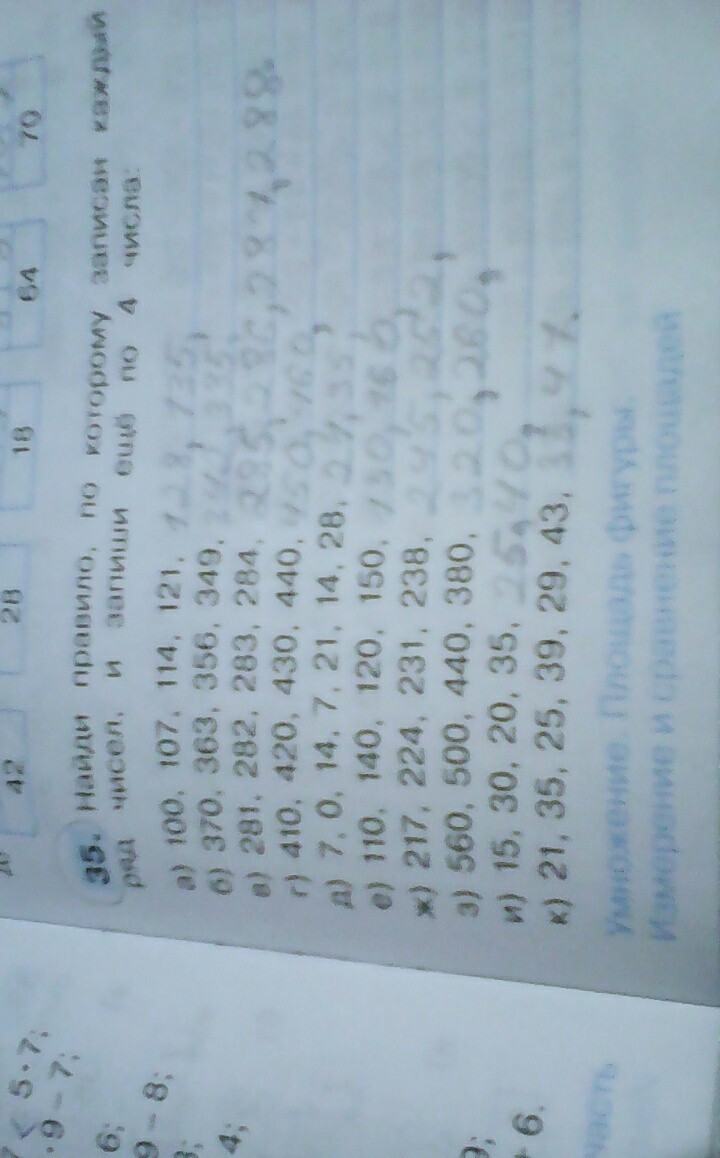 42 28 18 64 70
35. Найди правило, по которому записан каждый
ряд чисел, и запиши ещё по 4 числа:
а) 100, 107, 114, 121, 128, 135,
б) 370, 363, 356, 349, 342, 335,
в) 281, 282, 283, 284, 285, 286, 287, 288.
г) 410, 420, 430, 440, 450, 460,
д) 7, 0, 14, 7, 21, 14, 28,
е) 110, 140, 120, 150, 130, 160,
ж) 217, 224, 231, 238, 245, 252,
з) 560, 500, 440, 380, 320, 260,
и) 15, 30, 20, 35, 25, 40,
к) 21, 35, 25, 39, 29, 43, 33, 47.
Умножение. Площадь фигуры.
Измерение и сравнение площадей
5 · 7;
· 9 – 7;
6;
9 – 8;
4;
9;
+ 6.
часть